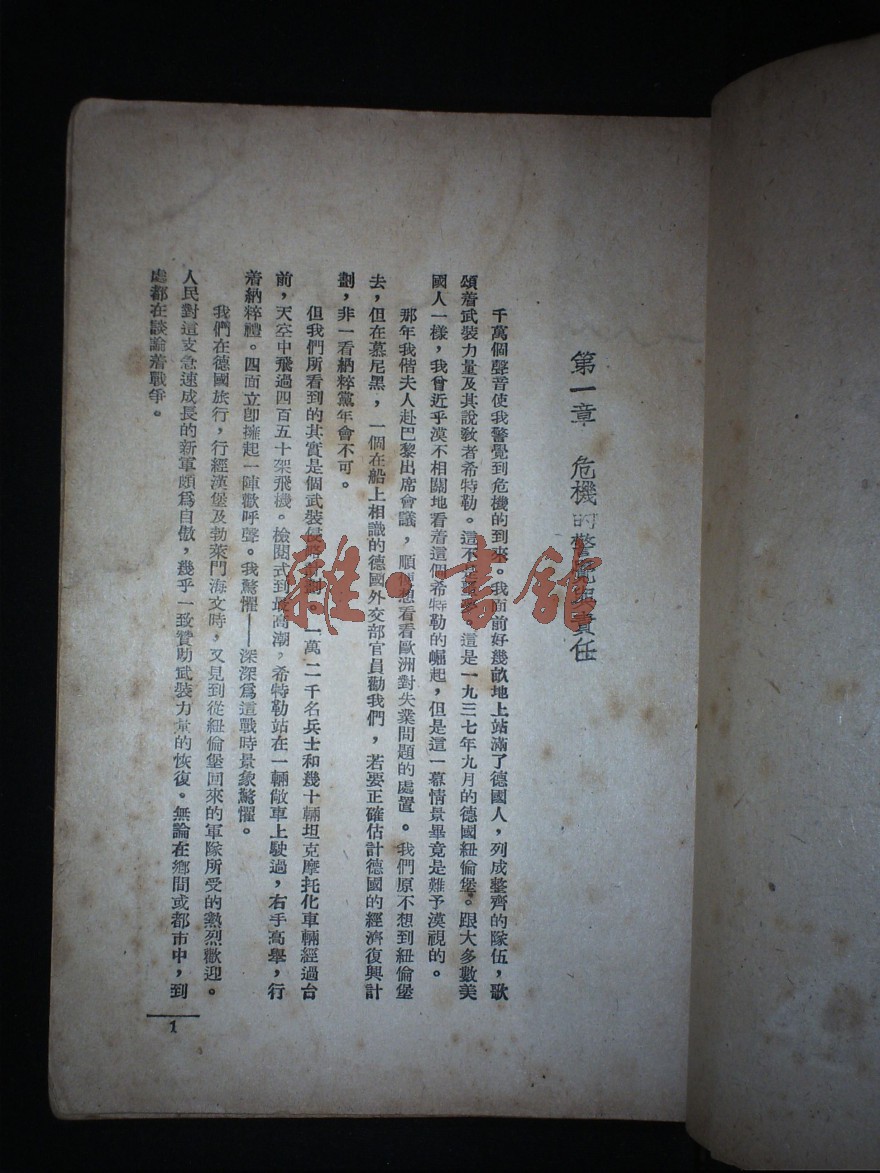 第一章　危機的警覺與責任
千萬個聲音使我警覺到危機的到來。我面前好幾畝地上站滿了德國人，列成整齊的隊伍，歌
頌着武裝力量及其說敎者希特勒。這不是。這是一九三七年九月的德國紐倫堡。跟大多數美
國人一樣，我曾近乎漠不相關地看着這個希特勒的崛起，但是這一幕情景畢竟是難予漠視的。
那年我偕夫人赴巴黎出席會議，順便想看看歐洲對失業問題的處置。我們原不想到紐倫堡
去，但在慕尼黑，一個在船上相識的德國外交部官員勸我們，若要正確估計德國的經濟復興計
劃，非一看納粹黨年會不可。
但我們所看到的其實是個武裝侵略計劃。一萬二千名兵士和幾十輛坦克摩托化車輛經過台
前，天空中飛過四百五十架飛機。檢閱式到最高潮，希特勒站在一輛敞車上駛過，右手高舉，行
着納粹禮。四面立卽擁起一陣歡呼聲。我驚懼——深深爲這戰時景象驚懼。
我們在德國旅行，行經漢堡及勃萊門海文時，又見到從紐倫堡回來的軍隊所受的熱烈歡迎。
人民對這支急速成長的新軍頗爲自傲，幾乎一致贊助武裝力量的恢復。無論在鄉間或都市中，到
處都在談論着戰爭。
1
雜·書館